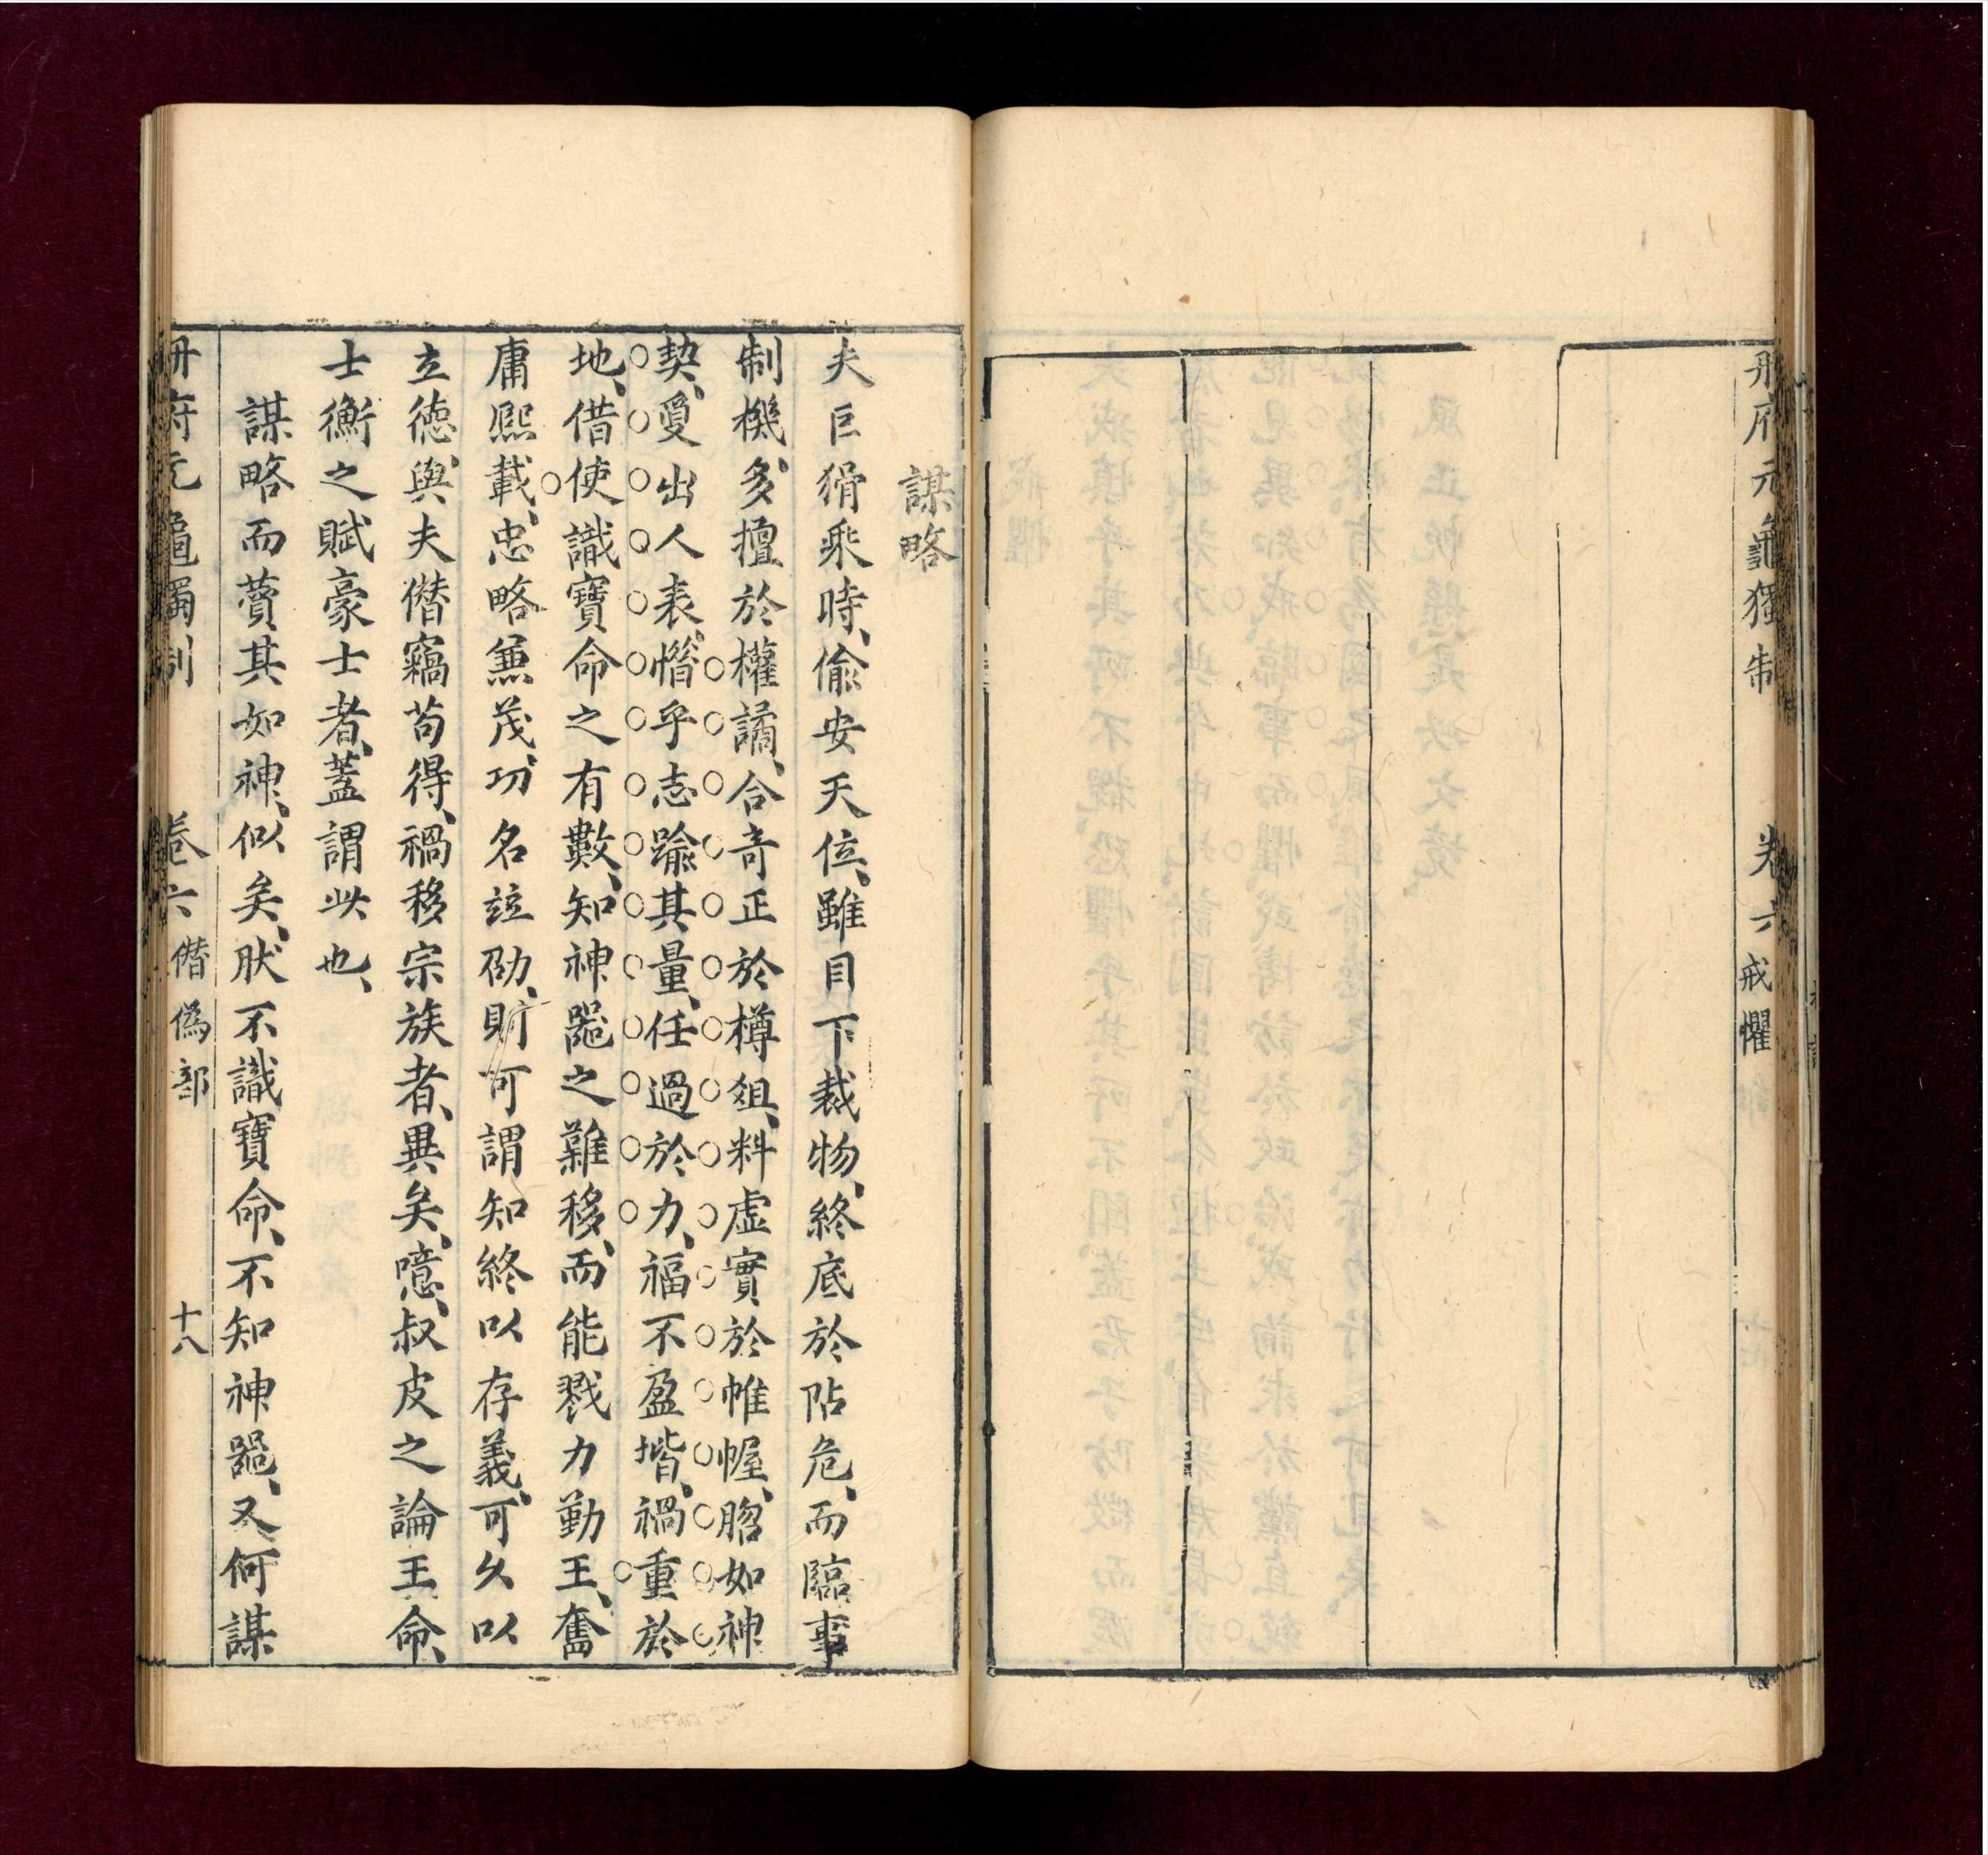 冊府元龜獨制 卷六 戒懼
謀略
夫巨猾乘時、偷安天位、雖目下裁物、終底於阽危、而臨事
制機、多擅於權譎、合奇正於樽俎、料虛實於帷幄、脗如神
契、夐出人表、惛乎志踰其量、任過於力、福不盈堦、禍重於
地、借使識寶命之有數、知神噐之難移、而能戮力勤王、奮
庸熙載、忠略兼茂、功名竝劭、則可謂知終以存義、可久以
立德、與夫僭竊苟得、禍移宗族者、異矣、噫、叔皮之論王命、
士衡之賦豪士者、蓋謂此也、
謀略而蕒其如神、似矣、肰不識寶命、不知神噐、又何謀
冊府元龜獨制 卷六 僭偽部 十八